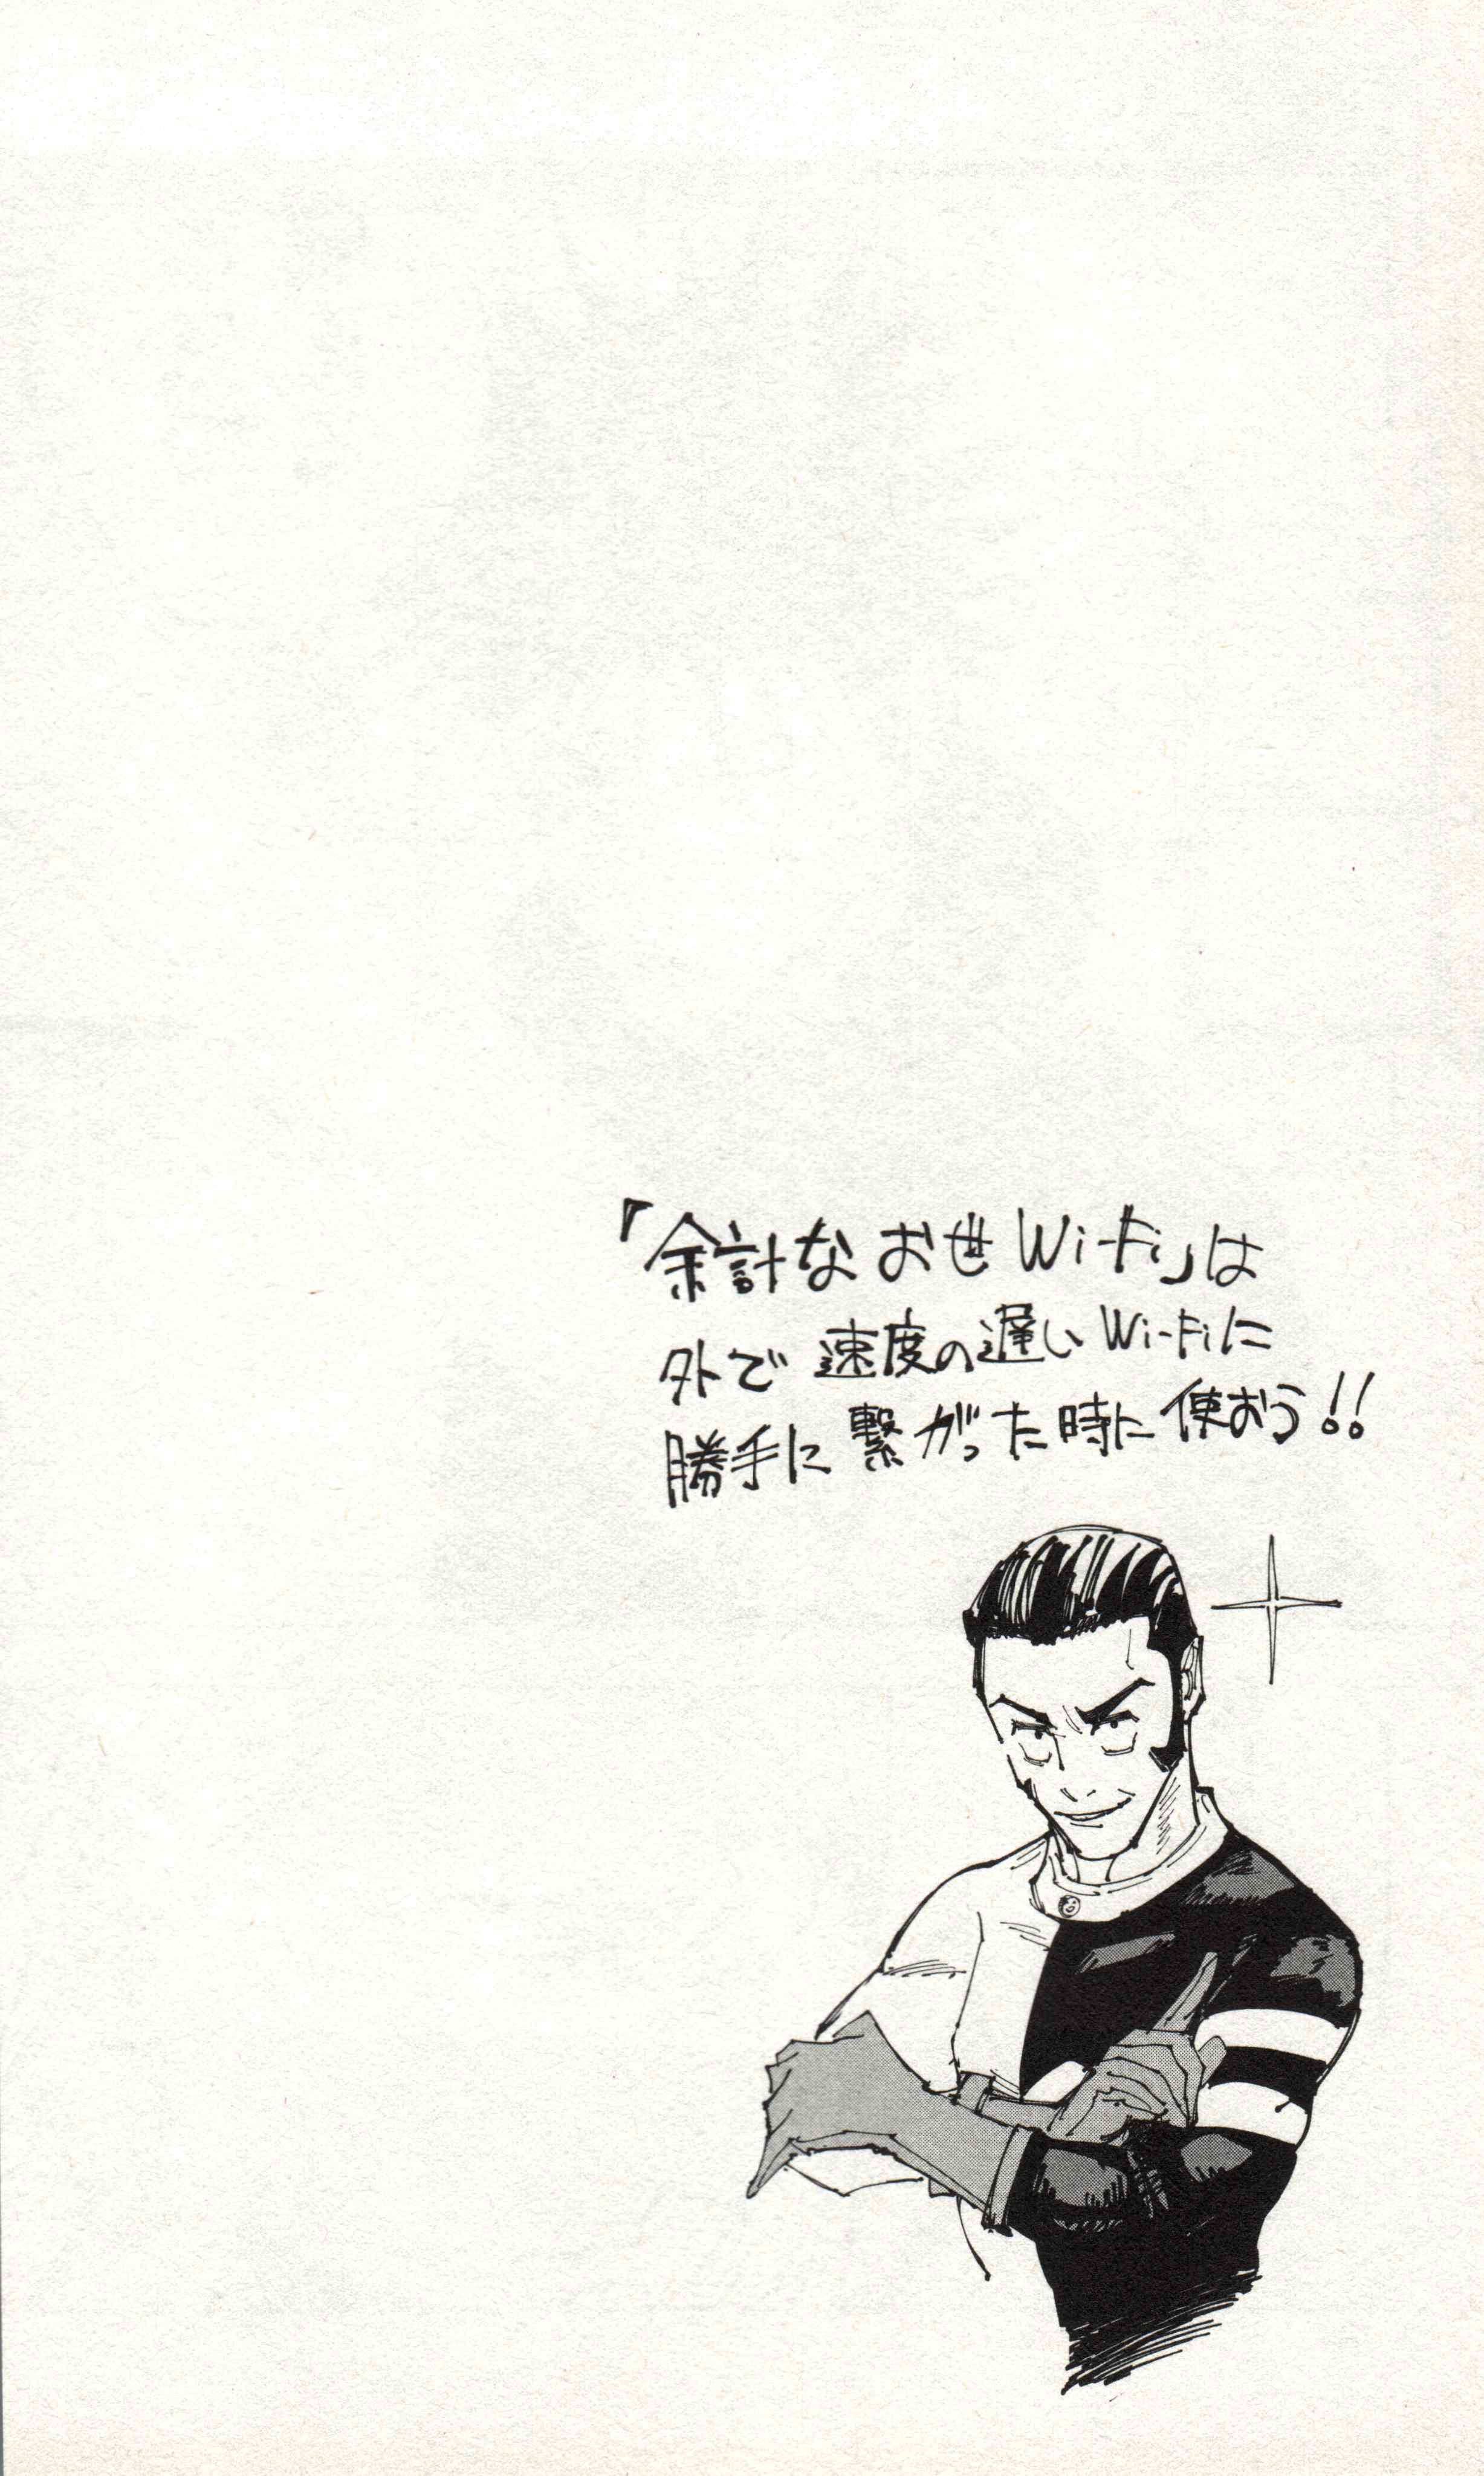 「余計なお世Wi-Fi」は
外で速度の遅いWi-Fiに
勝手に繋がった時に使おう!!